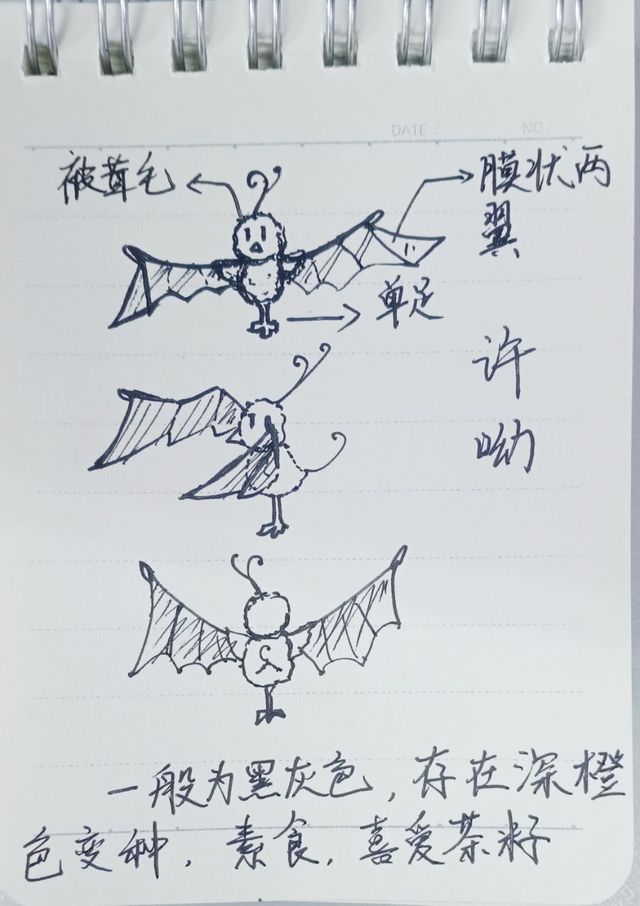 DATE
NO
被茸毛
膜状两
翼
单足
许
呦
一般为黑灰色,存在深橙
色变种,素食,喜爱茶籽